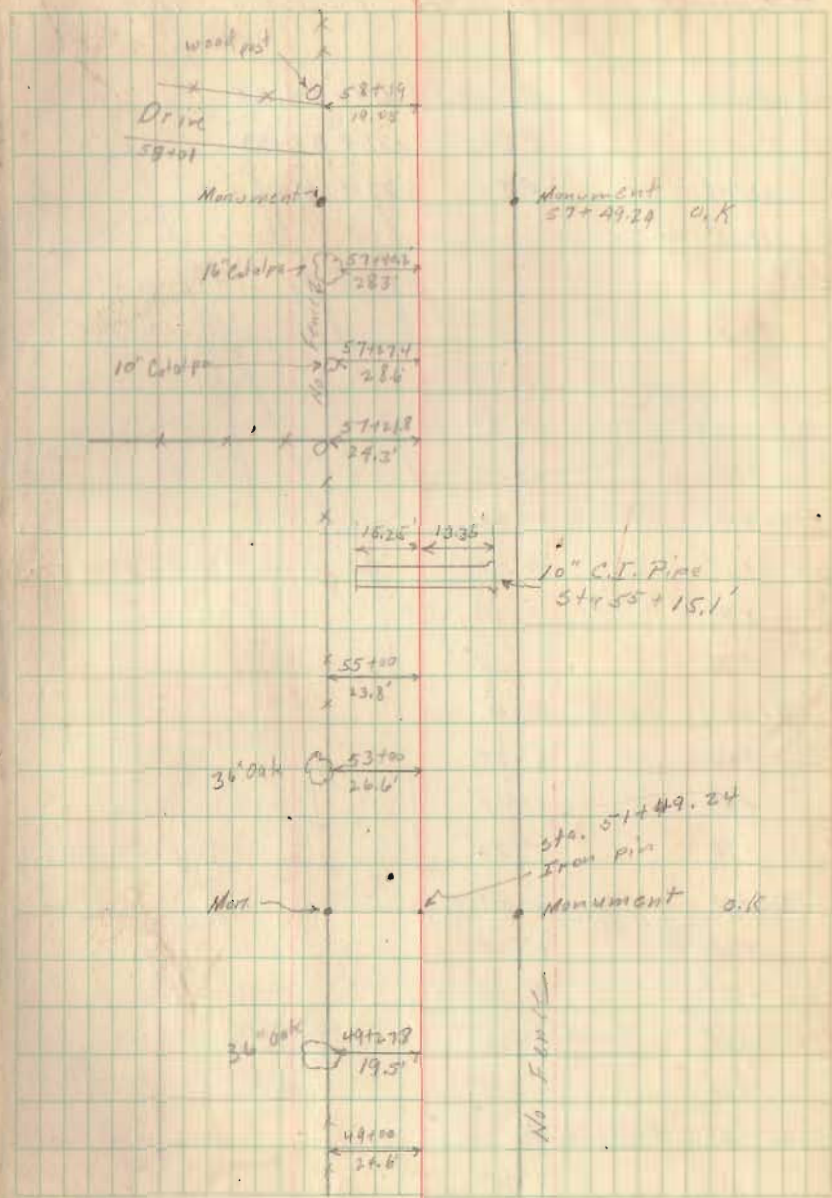 wood post
58+19
19.03
Drive
58+01
Monument
Monument
57+49.24 O.K
16" Catalpa
28.3'
No Fence
57+27.4
10" Catalpa
28.6'
57+21.8
24.3'
15.25' 13.35'
10" C.I. Pipe
Sta 55+15.1'
55+00
23.8'
53+00
36" Oak
26.6'
Sta. 51+49.24
Iron pin
Mon.
Monument O.K
36" Oak
49+27.8
19.5'
No Fence
49+00
24.6'